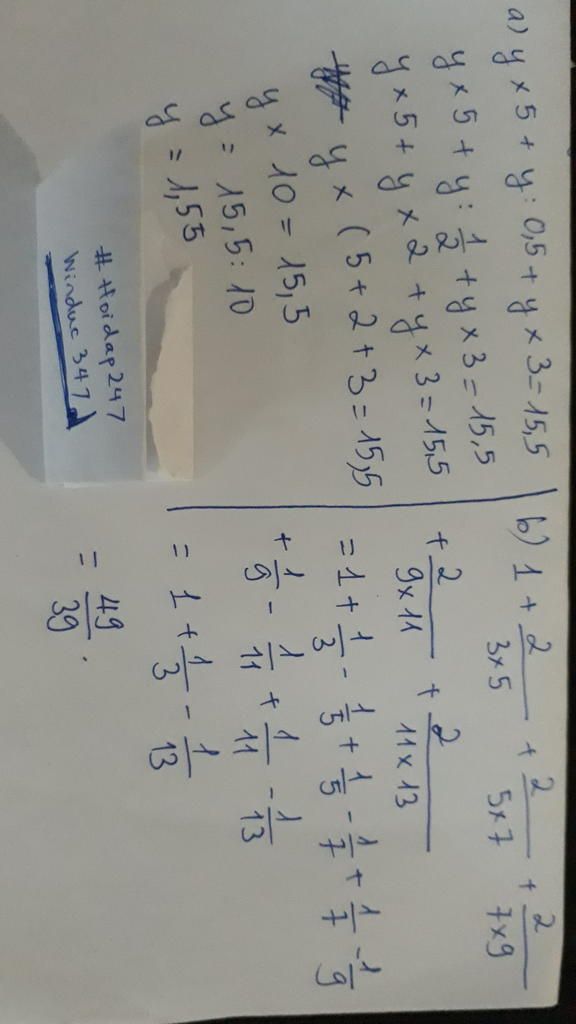 a) y x 5 + y : 0,5 + y x 3 = 15,5
y x 5 + y : 1/2 + y x 3 = 15,5
y x 5 + y x 2 + y x 3 = 15,5
y x ( 5 + 2 + 3 = 15,5
y x 10 = 15,5
y = 15,5 : 10
y = 1,55
# Hoidap247
Winduc 347
b) 1 + 2/3x5 + 2/5x7 + 2/7x9
+ 2/9x11 + 2/11x13
= 1 + 1/3 - 1/5 + 1/5 - 1/7 + 1/7 - 1/9
+ 1/9 - 1/11 + 1/11 - 1/13
= 1 + 1/3 - 1/13
= 49/39 .